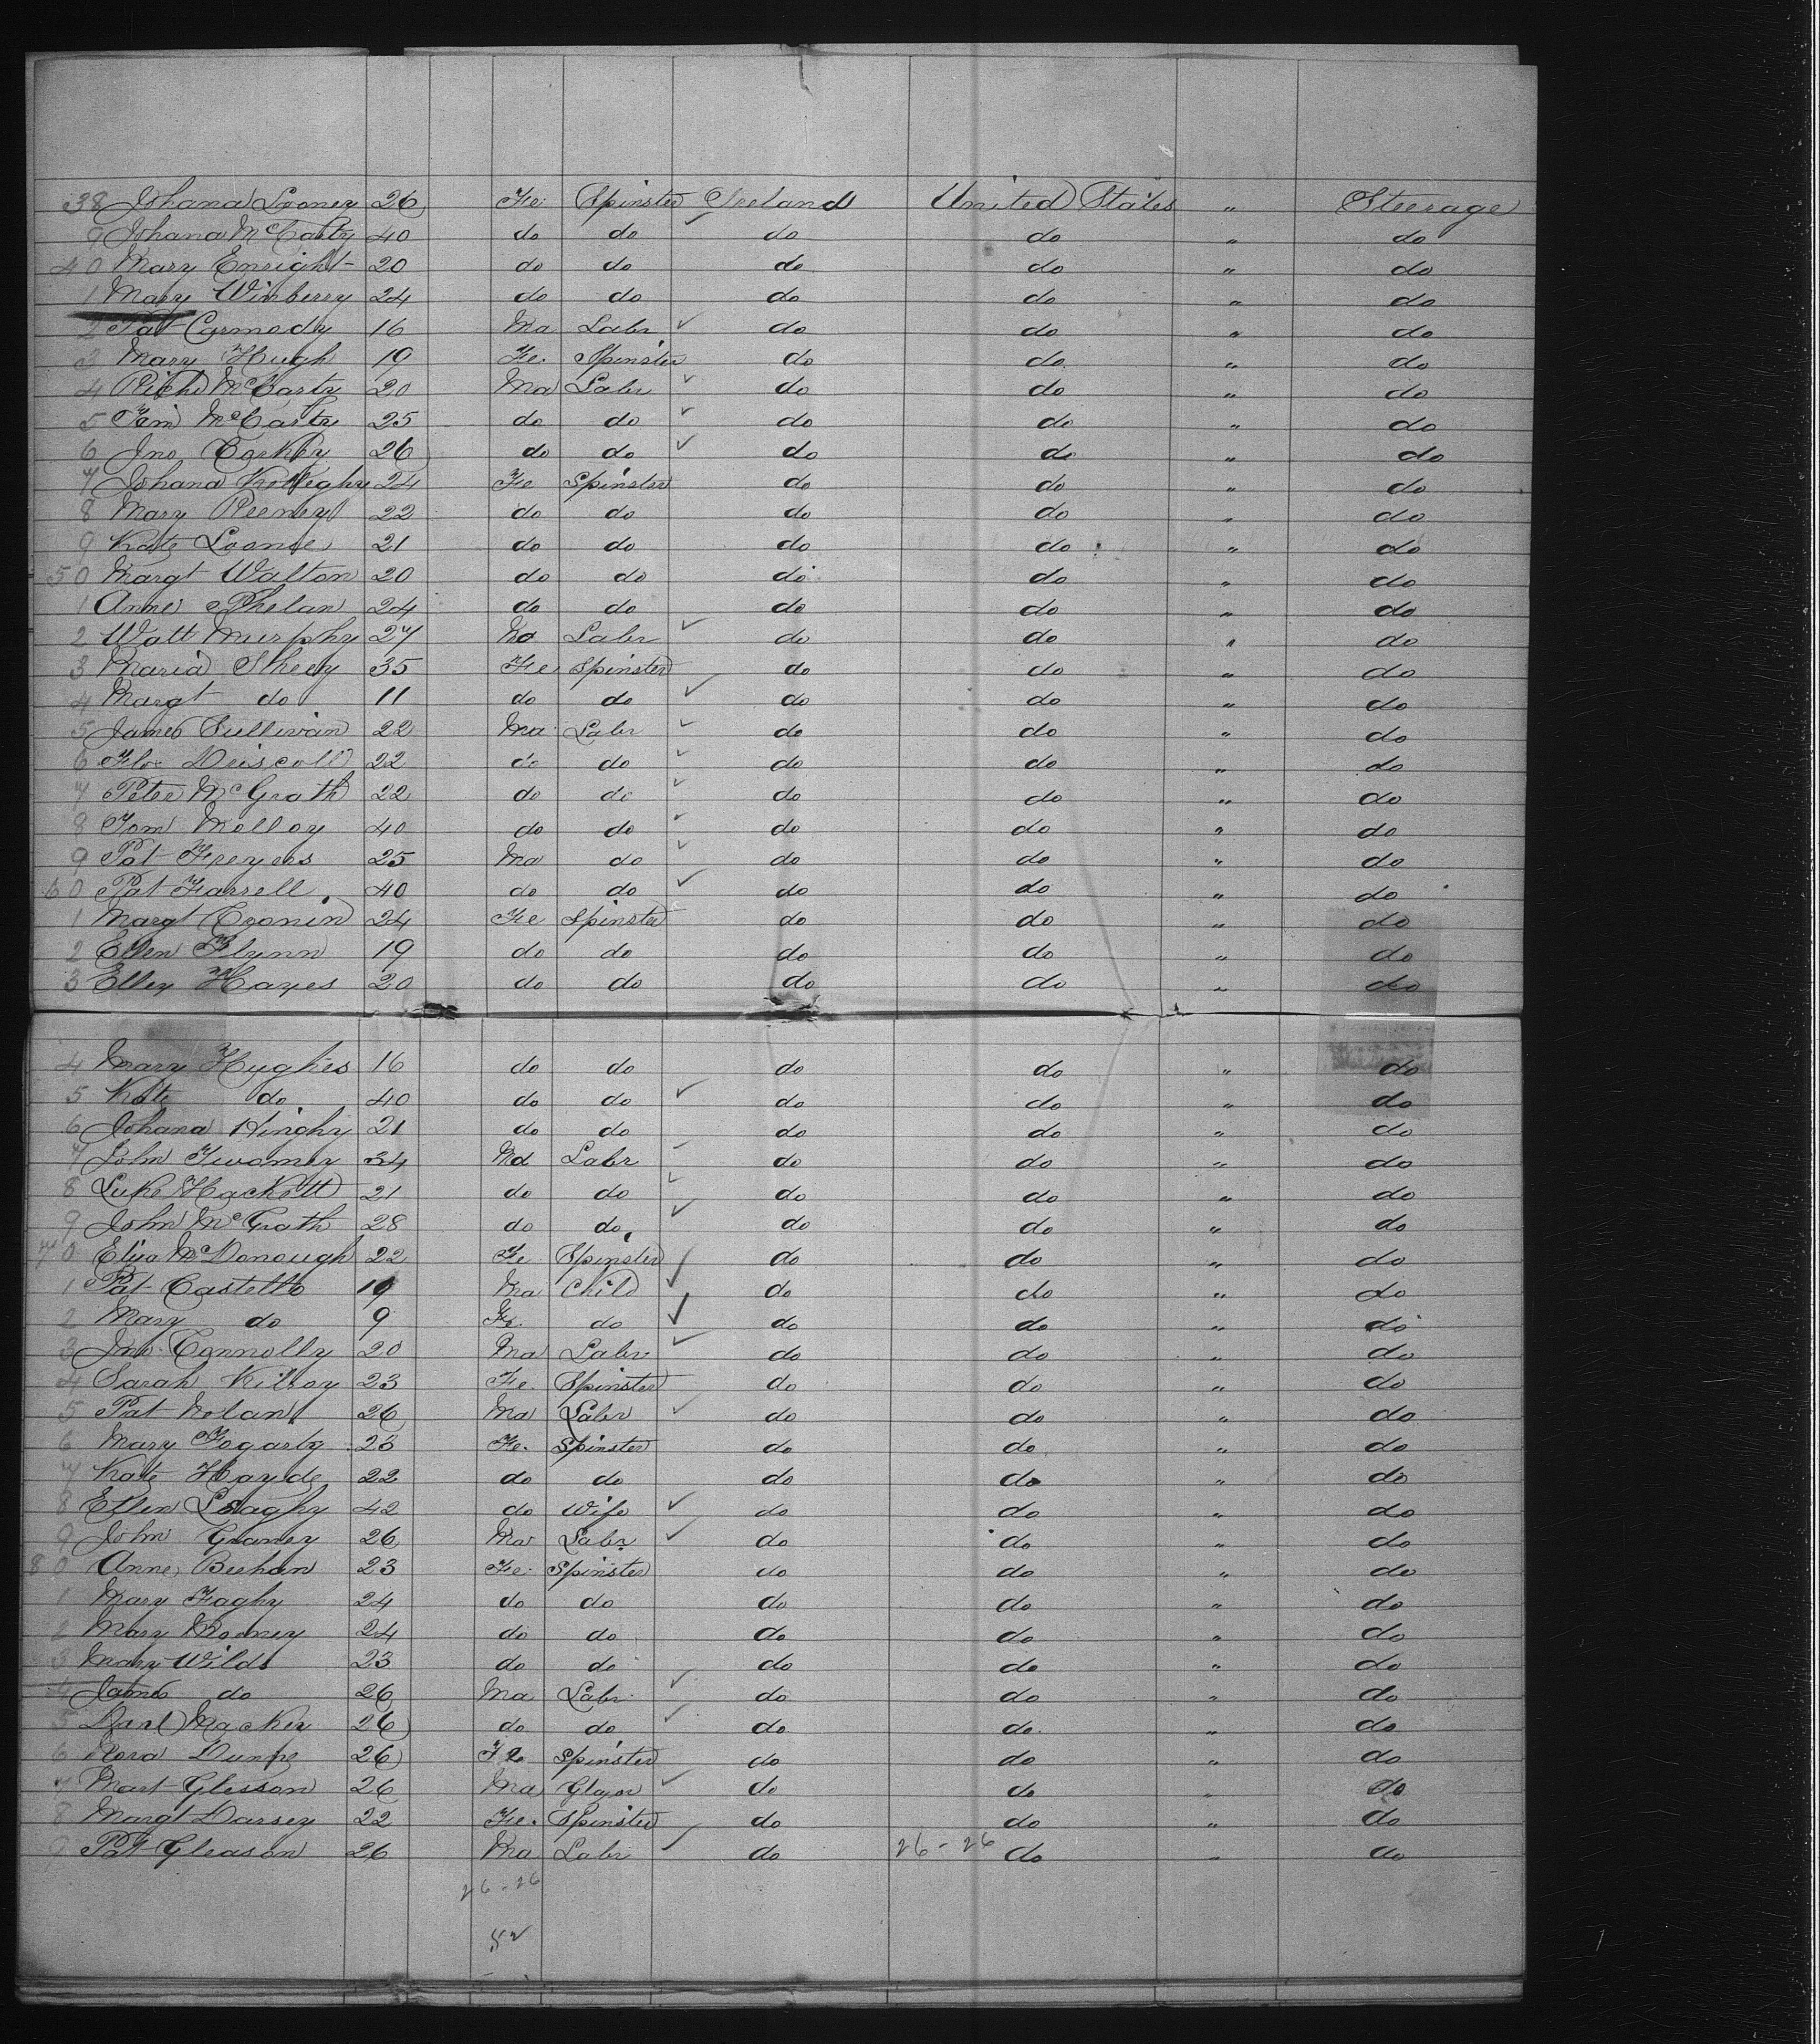 38 Johana Looney 26 Fe. Spinster Ireland United States " Steerage
9 Johana McCarty 40 do do do do " do
40 Mary Enright 20 do do do do " do
1 Mary Winberry 24 do do do do " do
2 Pat Carmody 16 Ma Labr do do " do
3 Mary Hugh 19 Fe. Spinster do do " do
4 Richd McCarty 20 Ma Labr do do " do
5 Tim McCarty 25 do do do do " do
6 Jno Corkey 26 do do do do " do
7 Johana 24 Fe Spinster do do " do
8 Mary Reeney 22 do do do do " do
9 Kate Loone 21 do do do do " do
50 Margt Walton 20 do do do do " do
1 Anne Phelan 24 do do do do " do
2 Watt Murphy 27 Ma Labr do do " do
3 Maria Sheey 35 Fe Spinster do do " do
4 Margt do 11 do do do do " do
5 James Sullivan 22 Ma Labr do do " do
6 Flo. Driscoll 22 do do do do " do
7 Peter McGrath 22 do do do do " do
8 Tom Molloy 40 do do do do " do
9 Pat Freyers 25 Ma do do do " do
60 Pat Farrell 40 do do do do " do
1 Margt Cronin 24 Fe Spinster do do " do
2 Ellen Flynn 19 do do do do " do
3 Elley Hayes 20 do do do do " do
4 Mary Hughes 16 do do do do " do
5 Kate do 40 do do do do " do
6 Johana Hinghy 21 do do do do " do
7 John Twomey 34 Ma Labr do do " do
8 Luke Hackett 21 do do do do " do
9 John McGrath 28 do do do do " do
70 Eliza McDonough 22 Fe Spinster do do " do
1 Pat Castello Ma Child do do " do
2 Mary do 9 Fe. do do do " do
3 Jno. Connolly 20 Ma Labr. do do " do
4 Sarah Kilroy 23 Fe. Spinster do do " do
5 Pat Nolan 26 Ma Labr do do " do
6 Mary Fogarty 23 Fe. Spinster do do " do
7 Kate Hayde 22 do do do do " do
8 Ellen 42 do Wife do do " do
9 John Graney 26 Ma Labr do do " do
80 Anne Beehan 23 Fe. Spinster do do " do
1 Mary Faghy 24 do do do do " do
2 Mary Rooney 24 do do do do " do
3 Mary Wilds 23 do do do do " do
4 James do 26 Ma Labr. do do " do
5 Danl Mackey 26 do do do do " do
6 Nora Dunne 26 Fe Spinster do do " do
7 Mart Glesson 26 Ma do do " do
8 Margt Darsey 22 Fe. Spinster do do " do
9 Pat Gleason 26 Ma Labr do 26-26 do " do
26-26
52